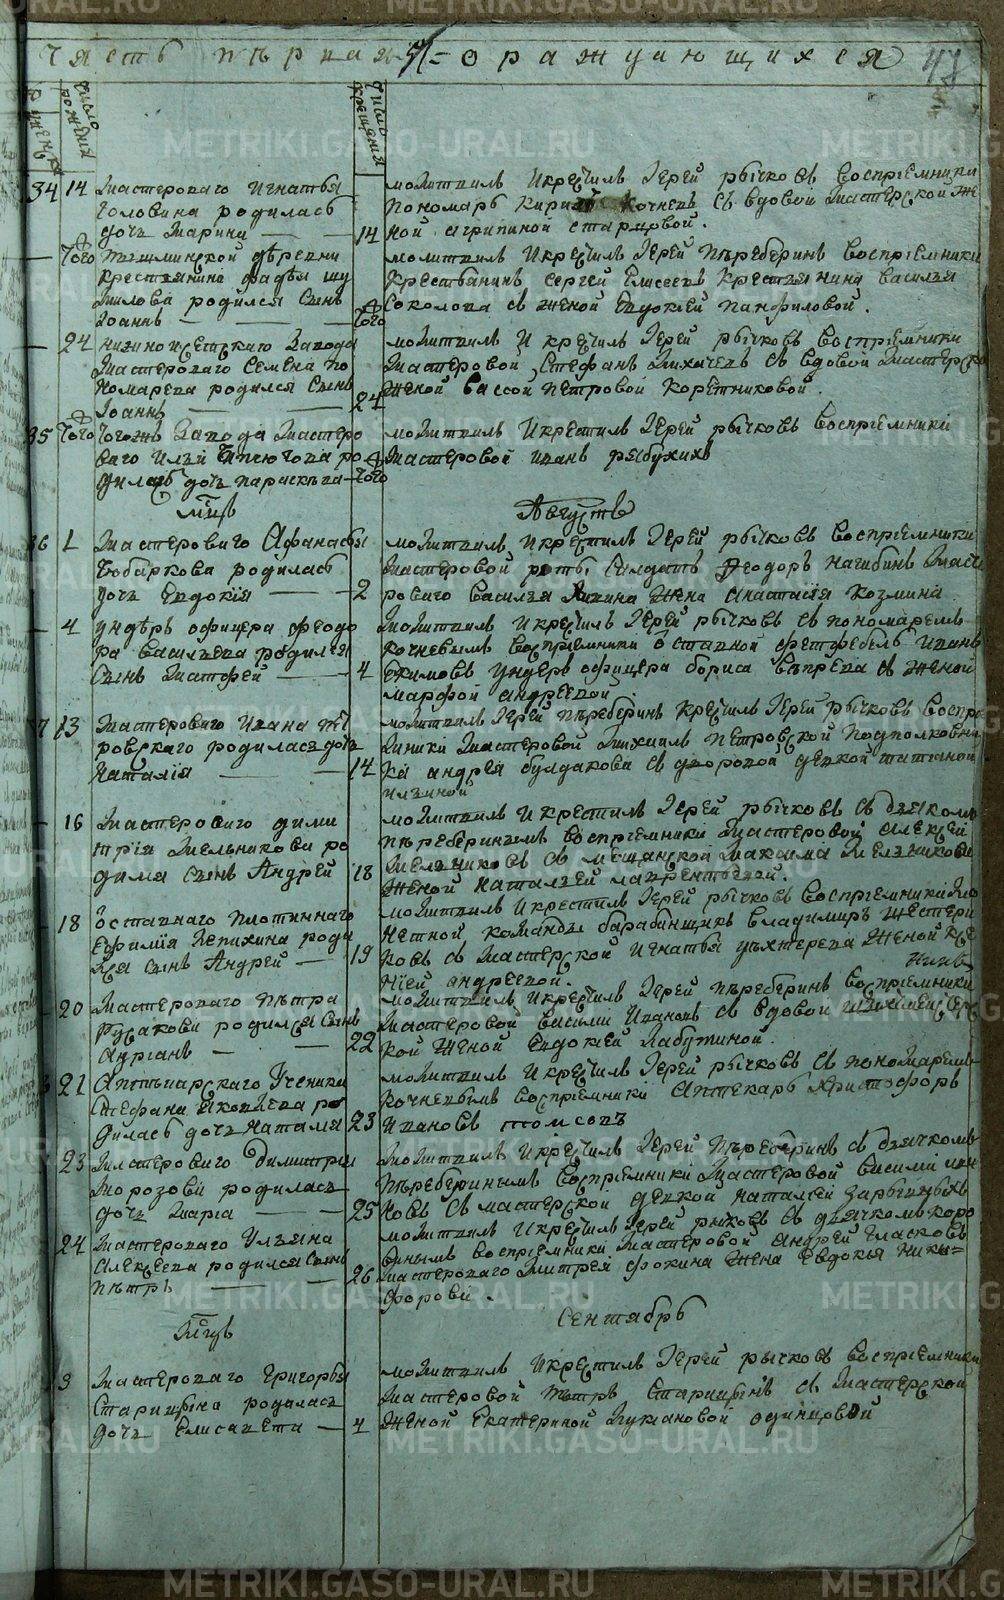 Часть перьвая о раждующихся
47
число рождения
число крещения
34 14 Мастероваго Игнатья
Головина родилась
дочь Марина
14
молитвилъ и крестилъ Иерей Рычковъ воспріемники
пономарь Кирилъ Кочневъ съ вдовой мастерской же
ной Агрипиной Старцовой.
того Пышминской деревни
крестьянина Фадея Шу
милова родился сынъ
Іоаннъ
того
молитвилъ и крестилъ Іерей Перебе­ринъ воспріемники
крестьянинъ Сергей Елисеевъ крестьянина Василья
Соколова съ женой Евдокіей Панфиловой.
24 Нижноисетскаго завода
мастероваго Семена По
номарева родился сынъ
Іоаннъ
24
молитвилъ и крестилъ Іерей Рычковъ воспріемники
мастеровой Стефанъ Лихачевъ съ вдовой мастерско
женой Вассой Петровой Коретниковой.
35 того тогожъ завода мастеро
ваго Ильи ро
дилась дочь Параскева
того
молитвилъ и крестилъ Іерей Рычковъ воспріемники
мастеровой Иванъ
мцъ Августъ
36 1 мастероваго Афанасья
Бобаркова родилась
дочь Евдокія
2
молитвилъ и крестилъ Іерей Рычковъ воспріемники
мастеровой роты салдатъ Феодоръ Нагибинъ масте
роваго Василья жена Анастасія Козмина
4 ундеръ офицера Феодо
ра Васильева родился
сынъ Матфей
4
молитвилъ и крестилъ Іерей Рычковъ съ пономаремъ
Кочневымъ воспріемники отставной фетфебель Иванъ
Екимовъ ундеръ офицера Бориса съ женой
Марфой Андреевой.
37 13 мастероваго Ивана Пет
ровскаго родилась дочь
Наталія
14
молитвилъ Іерей Перебе­ринъ крестилъ Іерей Рычковъ воспрі
емники мастеровой Михаилъ Петровской подполковни
ка Андрея Булдакова съ дворовой девкой Татьяной
Ильиной
16 мастероваго Дими
трія Мельникова ро
дился сынъ Андрей
18
молитвилъ и крестилъ Іерей Рычковъ съ дьякомъ
Перебе­ринымъ воспріемники мастеровой Алексей
Мельниковъ съ мещанской Максима Мельникова
женой Натальей Лаврентьевой.
18 отставнаго плотиннаго
Ефимія Лепихина роди
лся сынъ Андрей
19
молитвилъ и крестилъ Іерей Рычковъ воспріемники
команды барабанщикъ Владимиръ Жестери
ковъ съ мастерской Игнатья женой Ксе
ніей Андреевой.
20 мастероваго Петра
Русакова родился сынъ
Адріанъ
22
молитвилъ и крестилъ Іерей Перебе­ринъ воспріемники
мастеровой Василий Ивановъ съ вдовой мастерс
кой женой Евдокіей Лабутиной.
21 Аптекарскаго ученика
Стефана Яковлева ро
дилась дочь Наталія
23
молитвилъ и крестилъ Іерей Рычковъ съ пономаремъ
Кочневымъ воспріемники Аптекарь Христофоръ
Ивановъ Томсонъ
23 мастероваго Димитрія
Морозова родилась
дочь Марія
25
молитвилъ и крестилъ Іерей Перебе­ринъ съ дьячкомъ
Перебе­ринымъ воспріемники мастеровой Василий Ива
новъ съ мастерской девкой Натальей Зарывныхъ
24 мастероваго Ульяна
Алексеева родился сынъ
Петръ
26
молитвилъ и крестилъ Іерей Рычковъ съ дьячкомъ Коро
винымъ воспріемники мастеровой Андрей Гласковъ
мастероваго Дмитрея Фокина жена Евдокія Ники=
форова.
мцъ Сентябрь
3 мастероваго Григорья
Старицына родилась
дочь Елисавета
4
молитвилъ и крестилъ Іерей Рычковъ воспріемники
мастеровой Петръ Старицынъ съ мастерской
женой Екатериной Лукановой Одинцовой
METRIKI.GASO-URAL.RU